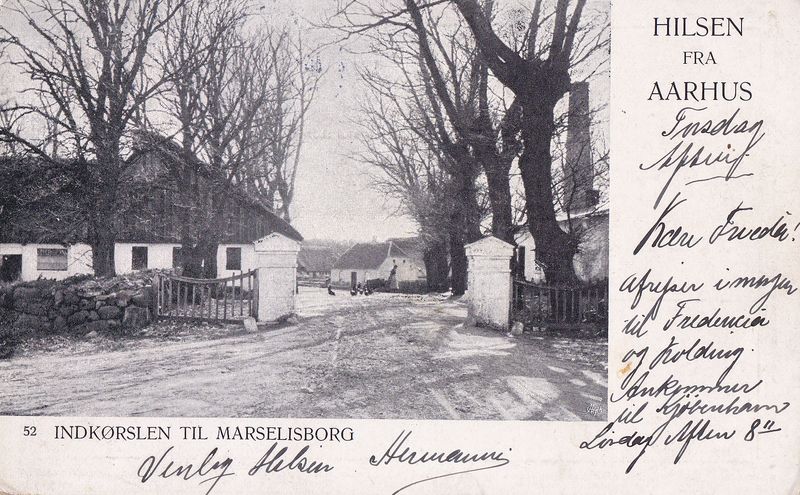 HILSEN
FRA
AARHUS
Torsdag
Aften.
Kære Frieda!
afrejser i morgen
til Fredericia
og Kolding.
Ankommer
til Kjøbenhavn
Lørdag Aften 8"
52 INDKØRSLEN TIL MARSELISBORG
Venlig Hilsen Hermann